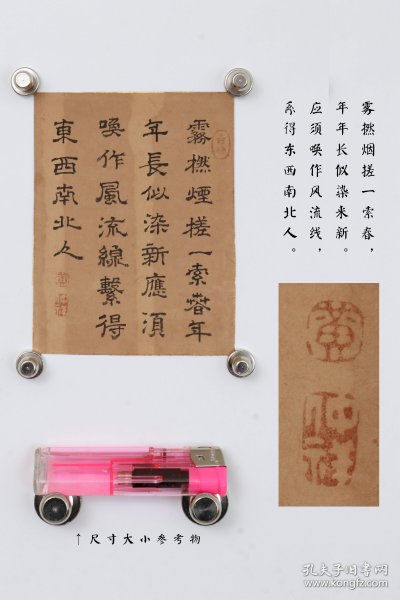 霧撚煙搓一索春年
年長似染新應須
喚作風流線繫得
東西南北人
雾撚烟搓一索春，
年年长似染来新。
应须唤作风流线，
系得东西南北人。
黄
↑尺寸大小參考物
孔夫子旧书网
www.kongfz.com